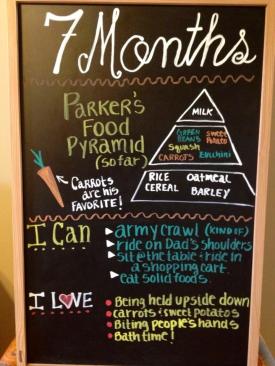 7 Months
PARKER'S
FOOD
PYRAMID
(so far)
MILK
GREEN BEANS SWEET POTATO
Squash
CARROTS Zucchini
RICE CEREAL Oatmeal
BARLEY
CARROTS
are his
FAVORITE!
I Can
army crawl (KIND OF)
ride on Dad's shoulders
sit @ the table & ride in
a shopping cart.
eat solid foods.
I LOVE
Being held upside down
carrots & sweet potatos
Biting people's hands
Bath time!